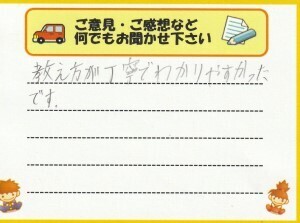 ご意見・ご感想など
何でもお聞かせ下さい
教え方が丁寧でわかりやすかった
です。